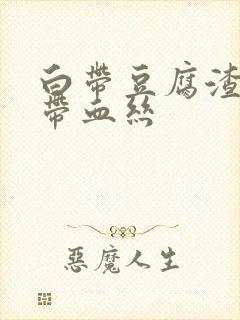 白带豆腐渣
帶血絲
惡魔人生